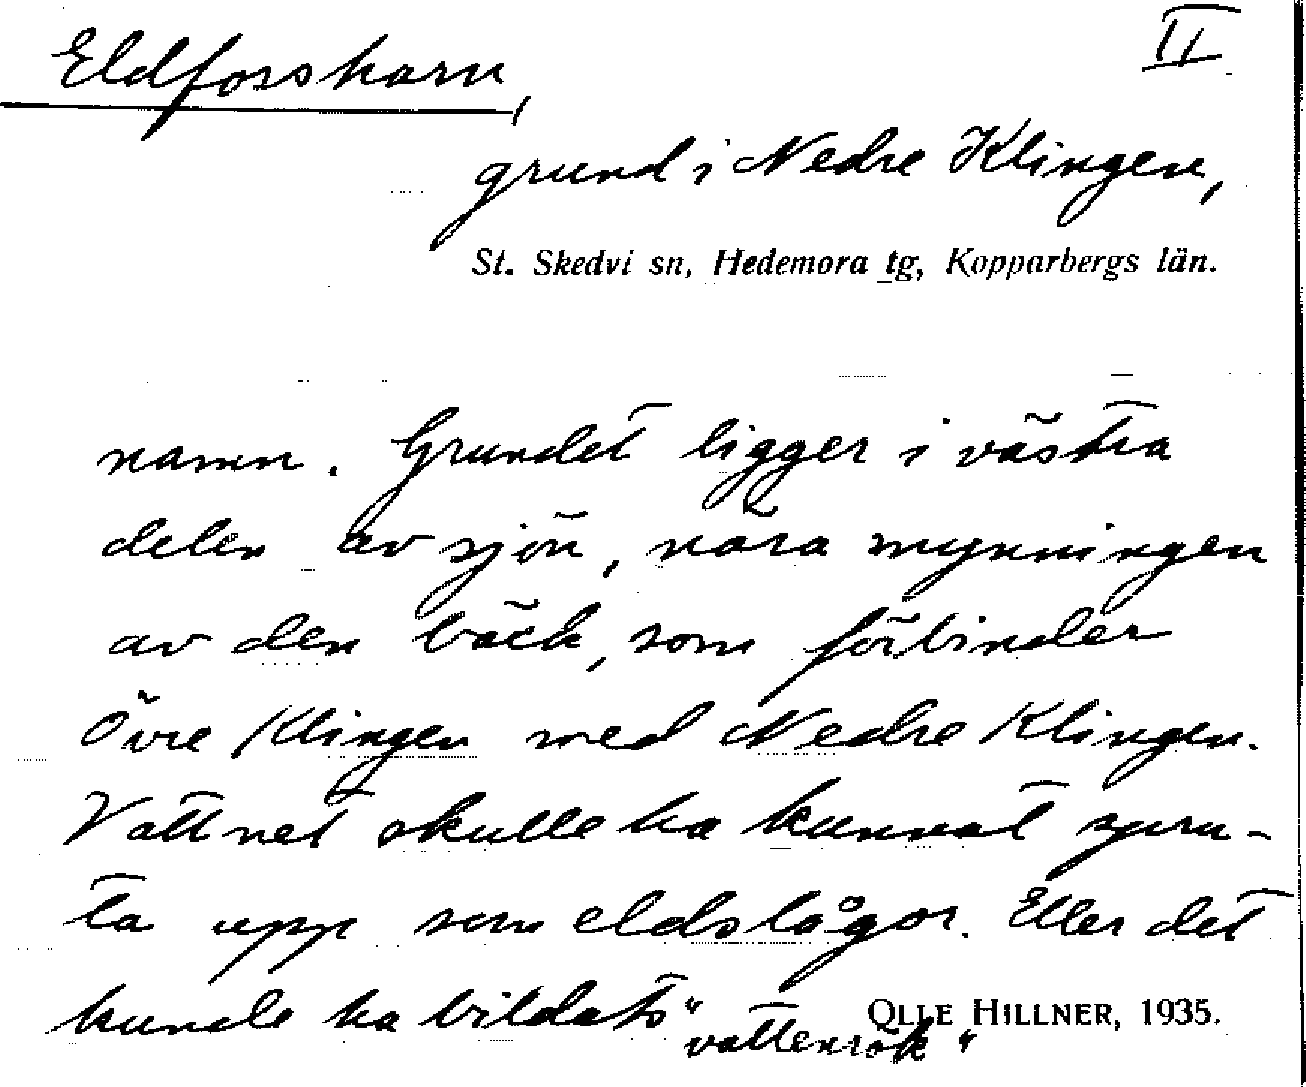 Eldforsharn,
II
grund i Nedre Klingen,
St. Skedvi sn, Hedemora tg, Kopparbergs län.
namn. Grundet ligger i västra
delen av sjön, nära mynningen
av den bäck, som förbinder
Övre Klingen med Nedre Klingen.
Vattnet skulle ha kunnat spru-
ta upp som eldslågor. Eller det
kunde ha bildats "vattenrök"
OLLE HILLNER, 1935.